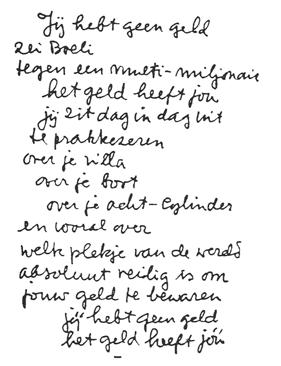 Jij hebt geen geld
zei Boeli
tegen een multi-miljonair
het geld heeft jou
jij zit dag in dag uit
te prakkezeren
over je villa
over je boot
over je acht-cylinder
en vooral over
welk plekje van de wereld
absoluut veilig is om
jouw geld te bewaren
jij hebt geen geld
het geld heeft jóú